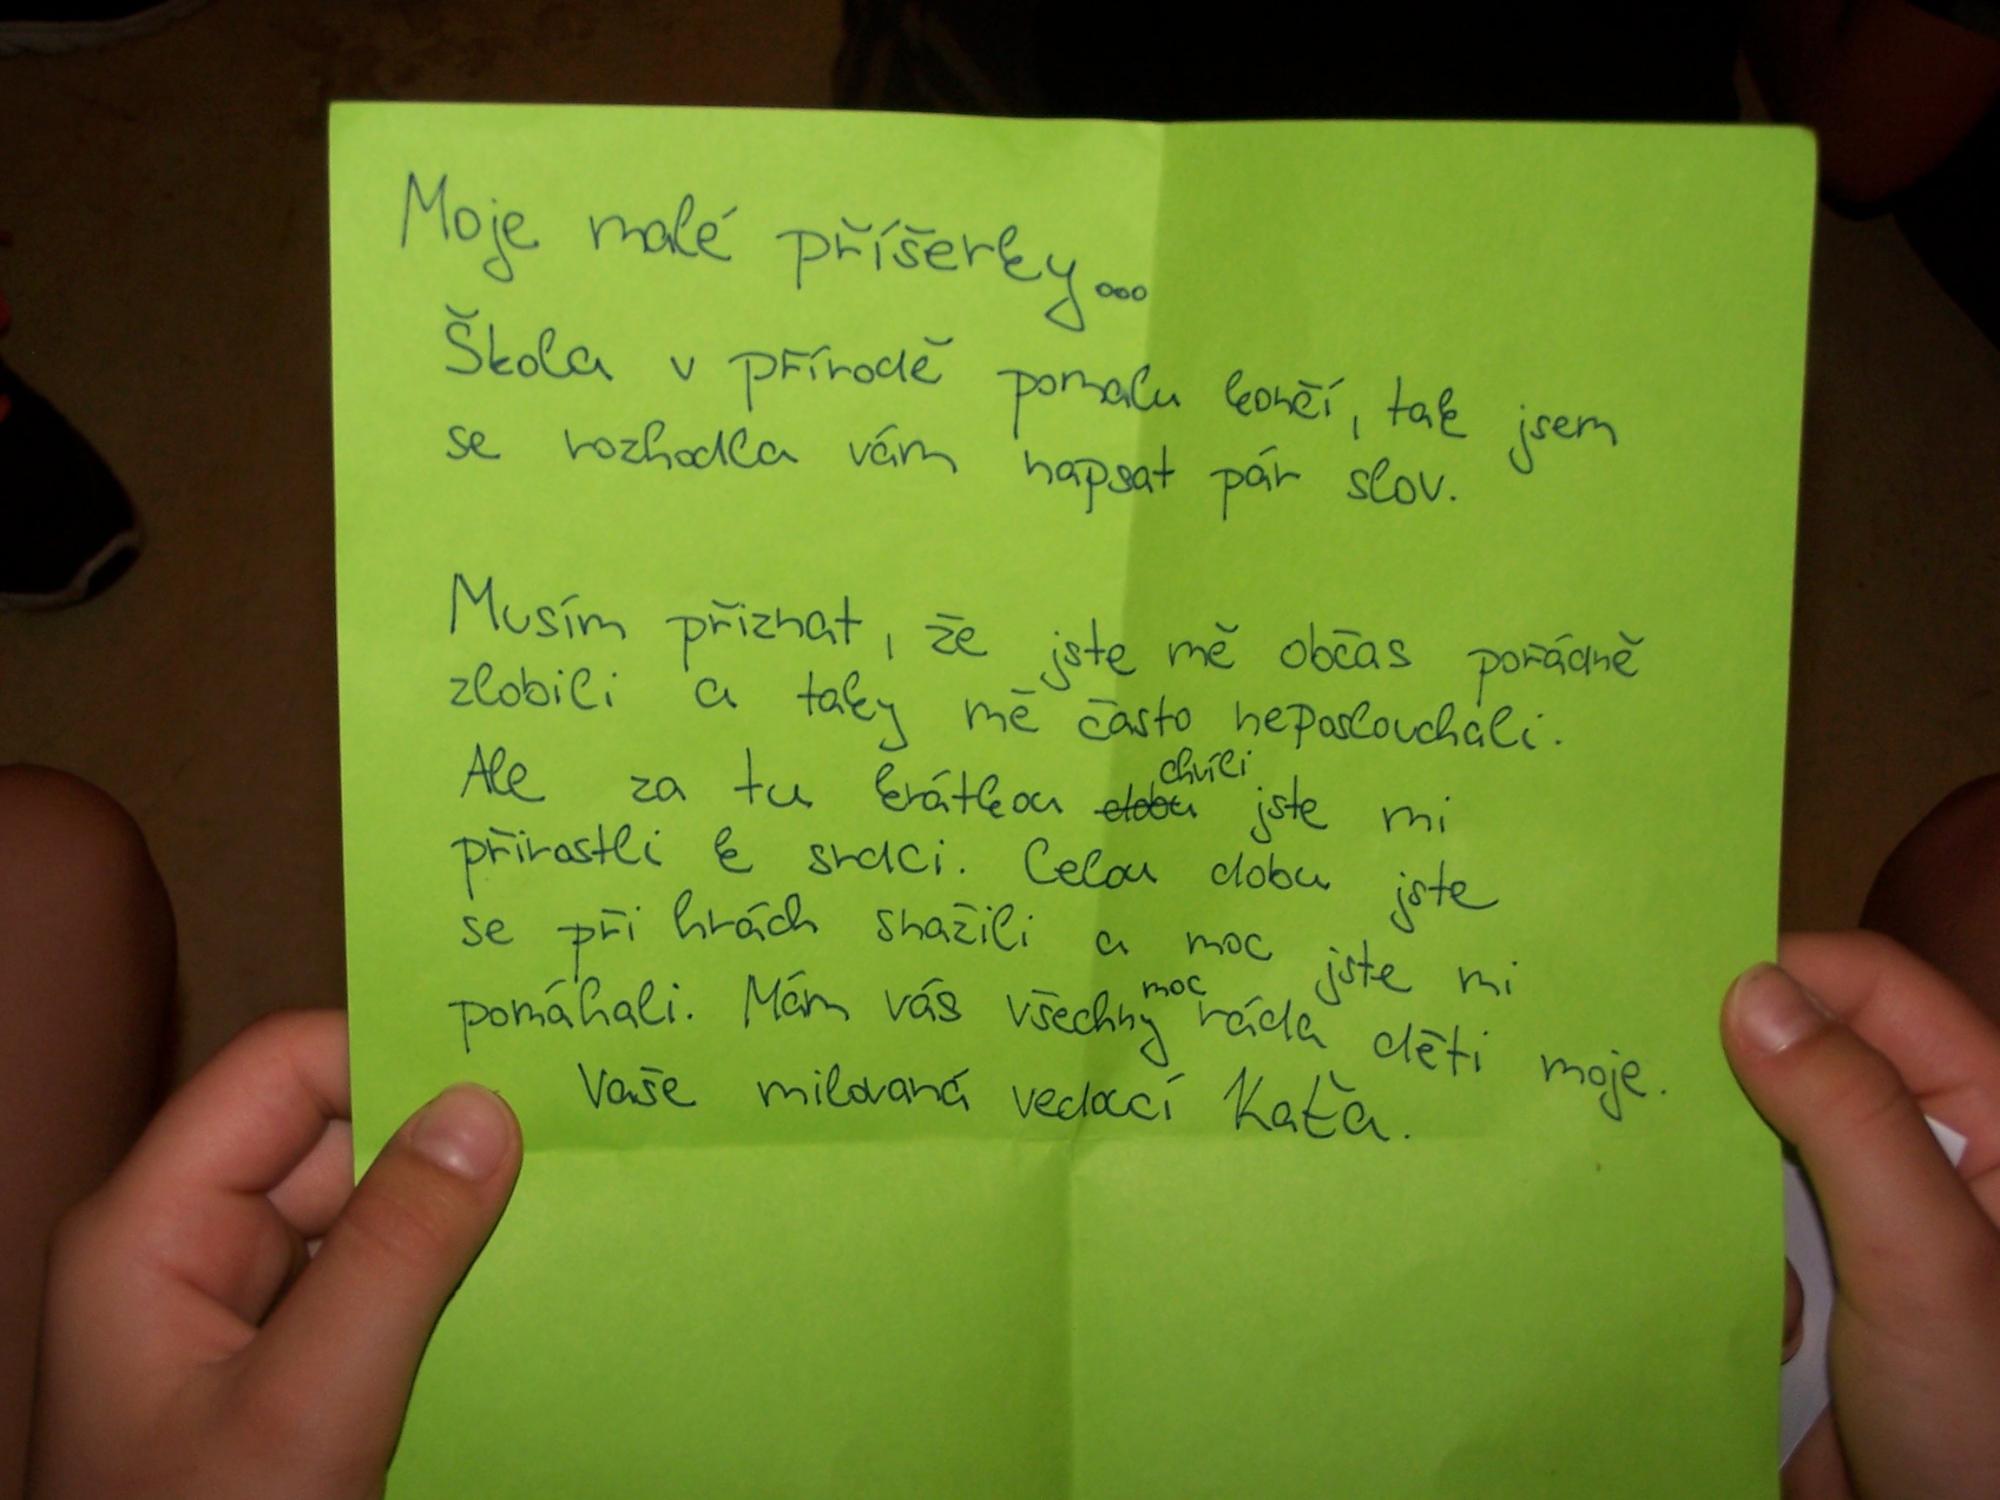 Moje malé příšerky...
Škola v přírodě pomalu končí, tak jsem
se rozhodla vám napsat pár slov.
Musím přiznat, že jste mě občas pořádně
zlobili a taky mě často neposlouchali.
Ale za tu krátkou dobu chvíli jste mi
přirostli k srdci. Celou dobu jste
se při hrách snažili a moc jste mi
pomáhali. Mám vás všechny moc ráda děti moje.
Vaše milovaná vedoucí Kaťa.